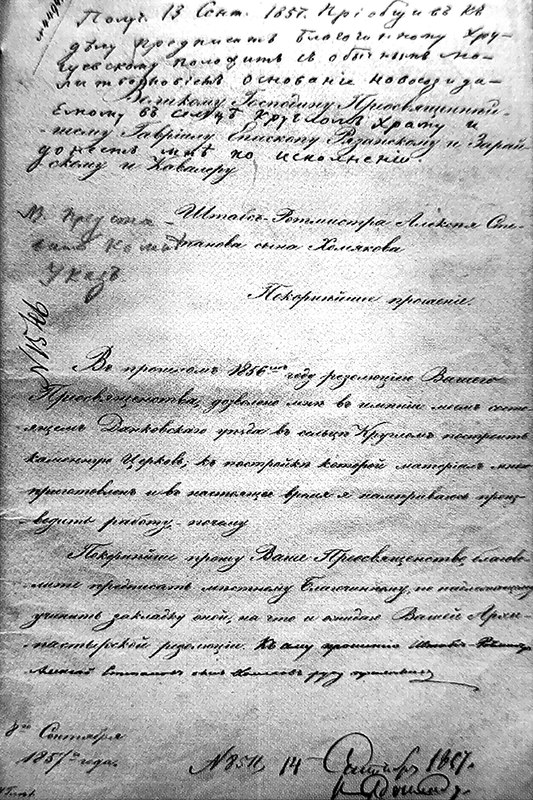 Получ. 13 Сент. 1857. Пріобщивъ къ
дѣлу предписать благочинному Хру-
щевскому положить съ обычнымъ мо-
литвословіемъ основаніе новосозида-
емому въ сельцѣ Кругломъ Храму и
Великому Господину Преосвященнѣй-
шему Гавріилу Епископу Рязанскому и Зарай-
донесть мнѣ по исполненіи.
скому и Кавалеру
Штабсъ-Ротмистра Алексѣя Сте-
панова сына Хомякова
Указъ
Покорнѣйшее прошеніе.
N 1546
Въ прошломъ 1856мъ году резолюціею Вашего
Преосвященства, дозволено мнѣ въ имѣніи моемъ состо-
ящемъ Данковскаго уѣзда въ сельцѣ Кругломъ построить
каменную Церковь, къ постройкѣ которой матеріалъ мною
приготовленъ и въ настоящее время я намѣреваюсь произ-
водить работу – почему
Покорнѣйше прошу Ваше Преосвященство, благово-
лите предписать мѣстному Благочинному, по надлежащему
учинить закладку оной, на что и ожидаю Вашей Архи-
пастырской резолюціи. Къ сему прошенію Штабсъ-Ротмистръ
Алексѣй Степановъ сынъ Хомяковъ руку приложилъ
Сентября
1857го года.
N 8511 14 Сентябр 1857.